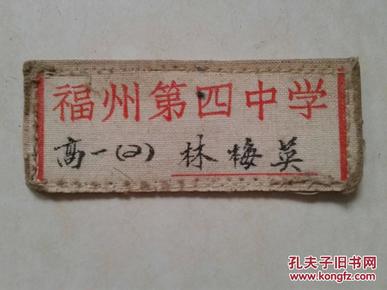 福州第四中学
高一(2) 林梅英
孔夫子旧书网